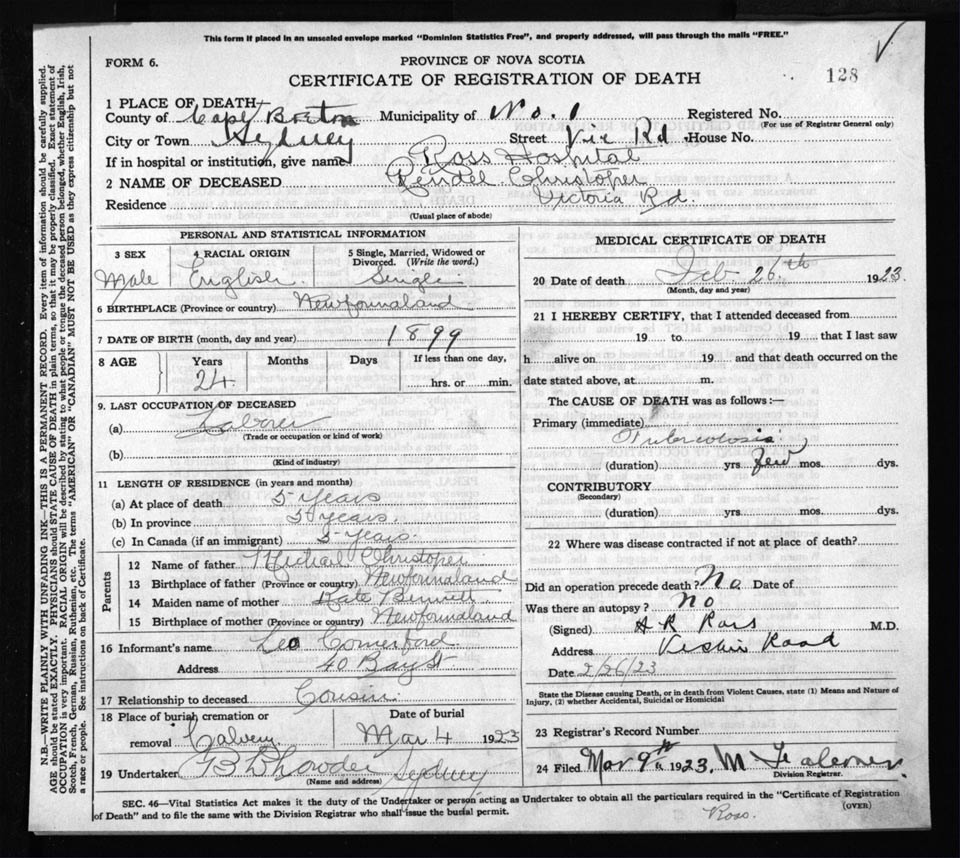 This form if placed in an unsealed envelope marked "Dominion Statistics Free", and properly addressed, will pass through the mails "FREE."
FORM 6.
PROVINCE OF NOVA SCOTIA
CERTIFICATE OF REGISTRATION OF DEATH
128
1 PLACE OF DEATH
County of Cape Breton Municipality of No. 1 Registered No.
(For use of Registrar General only)
City or Town Sydney Street Vic Rd House No.
If in hospital or institution, give name Ross Hospital
2 NAME OF DECEASED Rendel Christoper
Residence Victoria Rd.
(Usual place of abode)
PERSONAL AND STATISTICAL INFORMATION
3 SEX 4 RACIAL ORIGIN 5 Single, Married, Widowed or Divorced. (Write the word.)
Male English Single
6 BIRTHPLACE (Province or country) Newfoundland
7 DATE OF BIRTH (month, day and year) 1899
8 AGE Years Months Days If less than one day,
24 hrs. or min.
9. LAST OCCUPATION OF DECEASED
(a) Laborer
(Trade or occupation or kind of work)
(b)
(Kind of industry)
11 LENGTH OF RESIDENCE (in years and months)
(a) At place of death 5 years
(b) In province 5 years.
(c) In Canada (if an immigrant) 5 years.
Parents
12 Name of father Michael Christoper
13 Birthplace of father (Province or country) Newfoundland
14 Maiden name of mother Kate Bennett
15 Birthplace of mother (Province or country) Newfoundland
16 Informant's name Leo Comerford
Address 40 Bay St
17 Relationship to deceased Cousin
18 Place of burial, cremation or removal Calvery Date of burial Mar 4 1923
19 Undertaker Sydney
(Name and address)
MEDICAL CERTIFICATE OF DEATH
20 Date of death Feb 26th 1923.
(Month, day and year)
21 I HEREBY CERTIFY, that I attended deceased from
19 to 19 that I last saw
h alive on 19 and that death occurred on the
date stated above, at m.
The CAUSE OF DEATH was as follows:—
Primary (immediate)
Tuberculosis
(duration) yrs few mos. dys.
CONTRIBUTORY
(Secondary)
(duration) yrs mos. dys.
22 Where was disease contracted if not at place of death?
Did an operation precede death? No Date of
Was there an autopsy? No
(Signed) H R Ross M.D.
Address Road
Date 2/26/23
State the Disease causing Death, or in death from Violent Causes, state (1) Means and Nature of
Injury, (2) whether Accidental, Suicidal or Homicidal
23 Registrar's Record Number
24 Filed Mar 9th 1923.
Division Registrar.
SEC. 46—Vital Statistics Act makes it the duty of the Undertaker or person acting as Undertaker to obtain all the particulars required in the "Certificate of Registration
of Death" and to file the same with the Division Registrar who shall issue the burial permit.
(OVER)
Ross.
N.B.—WRITE PLAINLY WITH UNFADING INK—THIS IS A PERMANENT RECORD. Every item of information should be carefully supplied.
AGE should be stated EXACTLY. PHYSICIANS should STATE CAUSE OF DEATH in plain terms, so that it may be properly classified. Exact statement of
OCCUPATION is very important. RACIAL ORIGIN will be described by stating to what people or tongue the deceased person belonged, whether English, Irish,
Scotch, French, German, Russian, Ruthenian, etc. The terms "AMERICAN" OR "CANADIAN" MUST NOT BE USED as they express citizenship but not
a race or people. See instructions on back of Certificate.